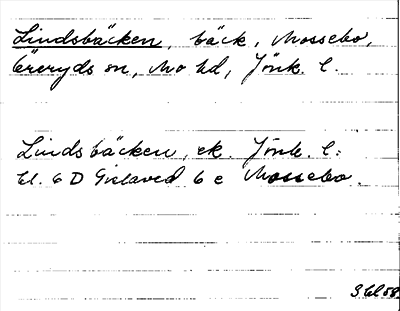 Lindsbäcken, bäck, Mossebo,
Öreryds sn, Mo hd, Jönk. l.
Lindsbäcken, ek. Jönk. l:
bl. 6 D Gislaved 6 e Mossebo.